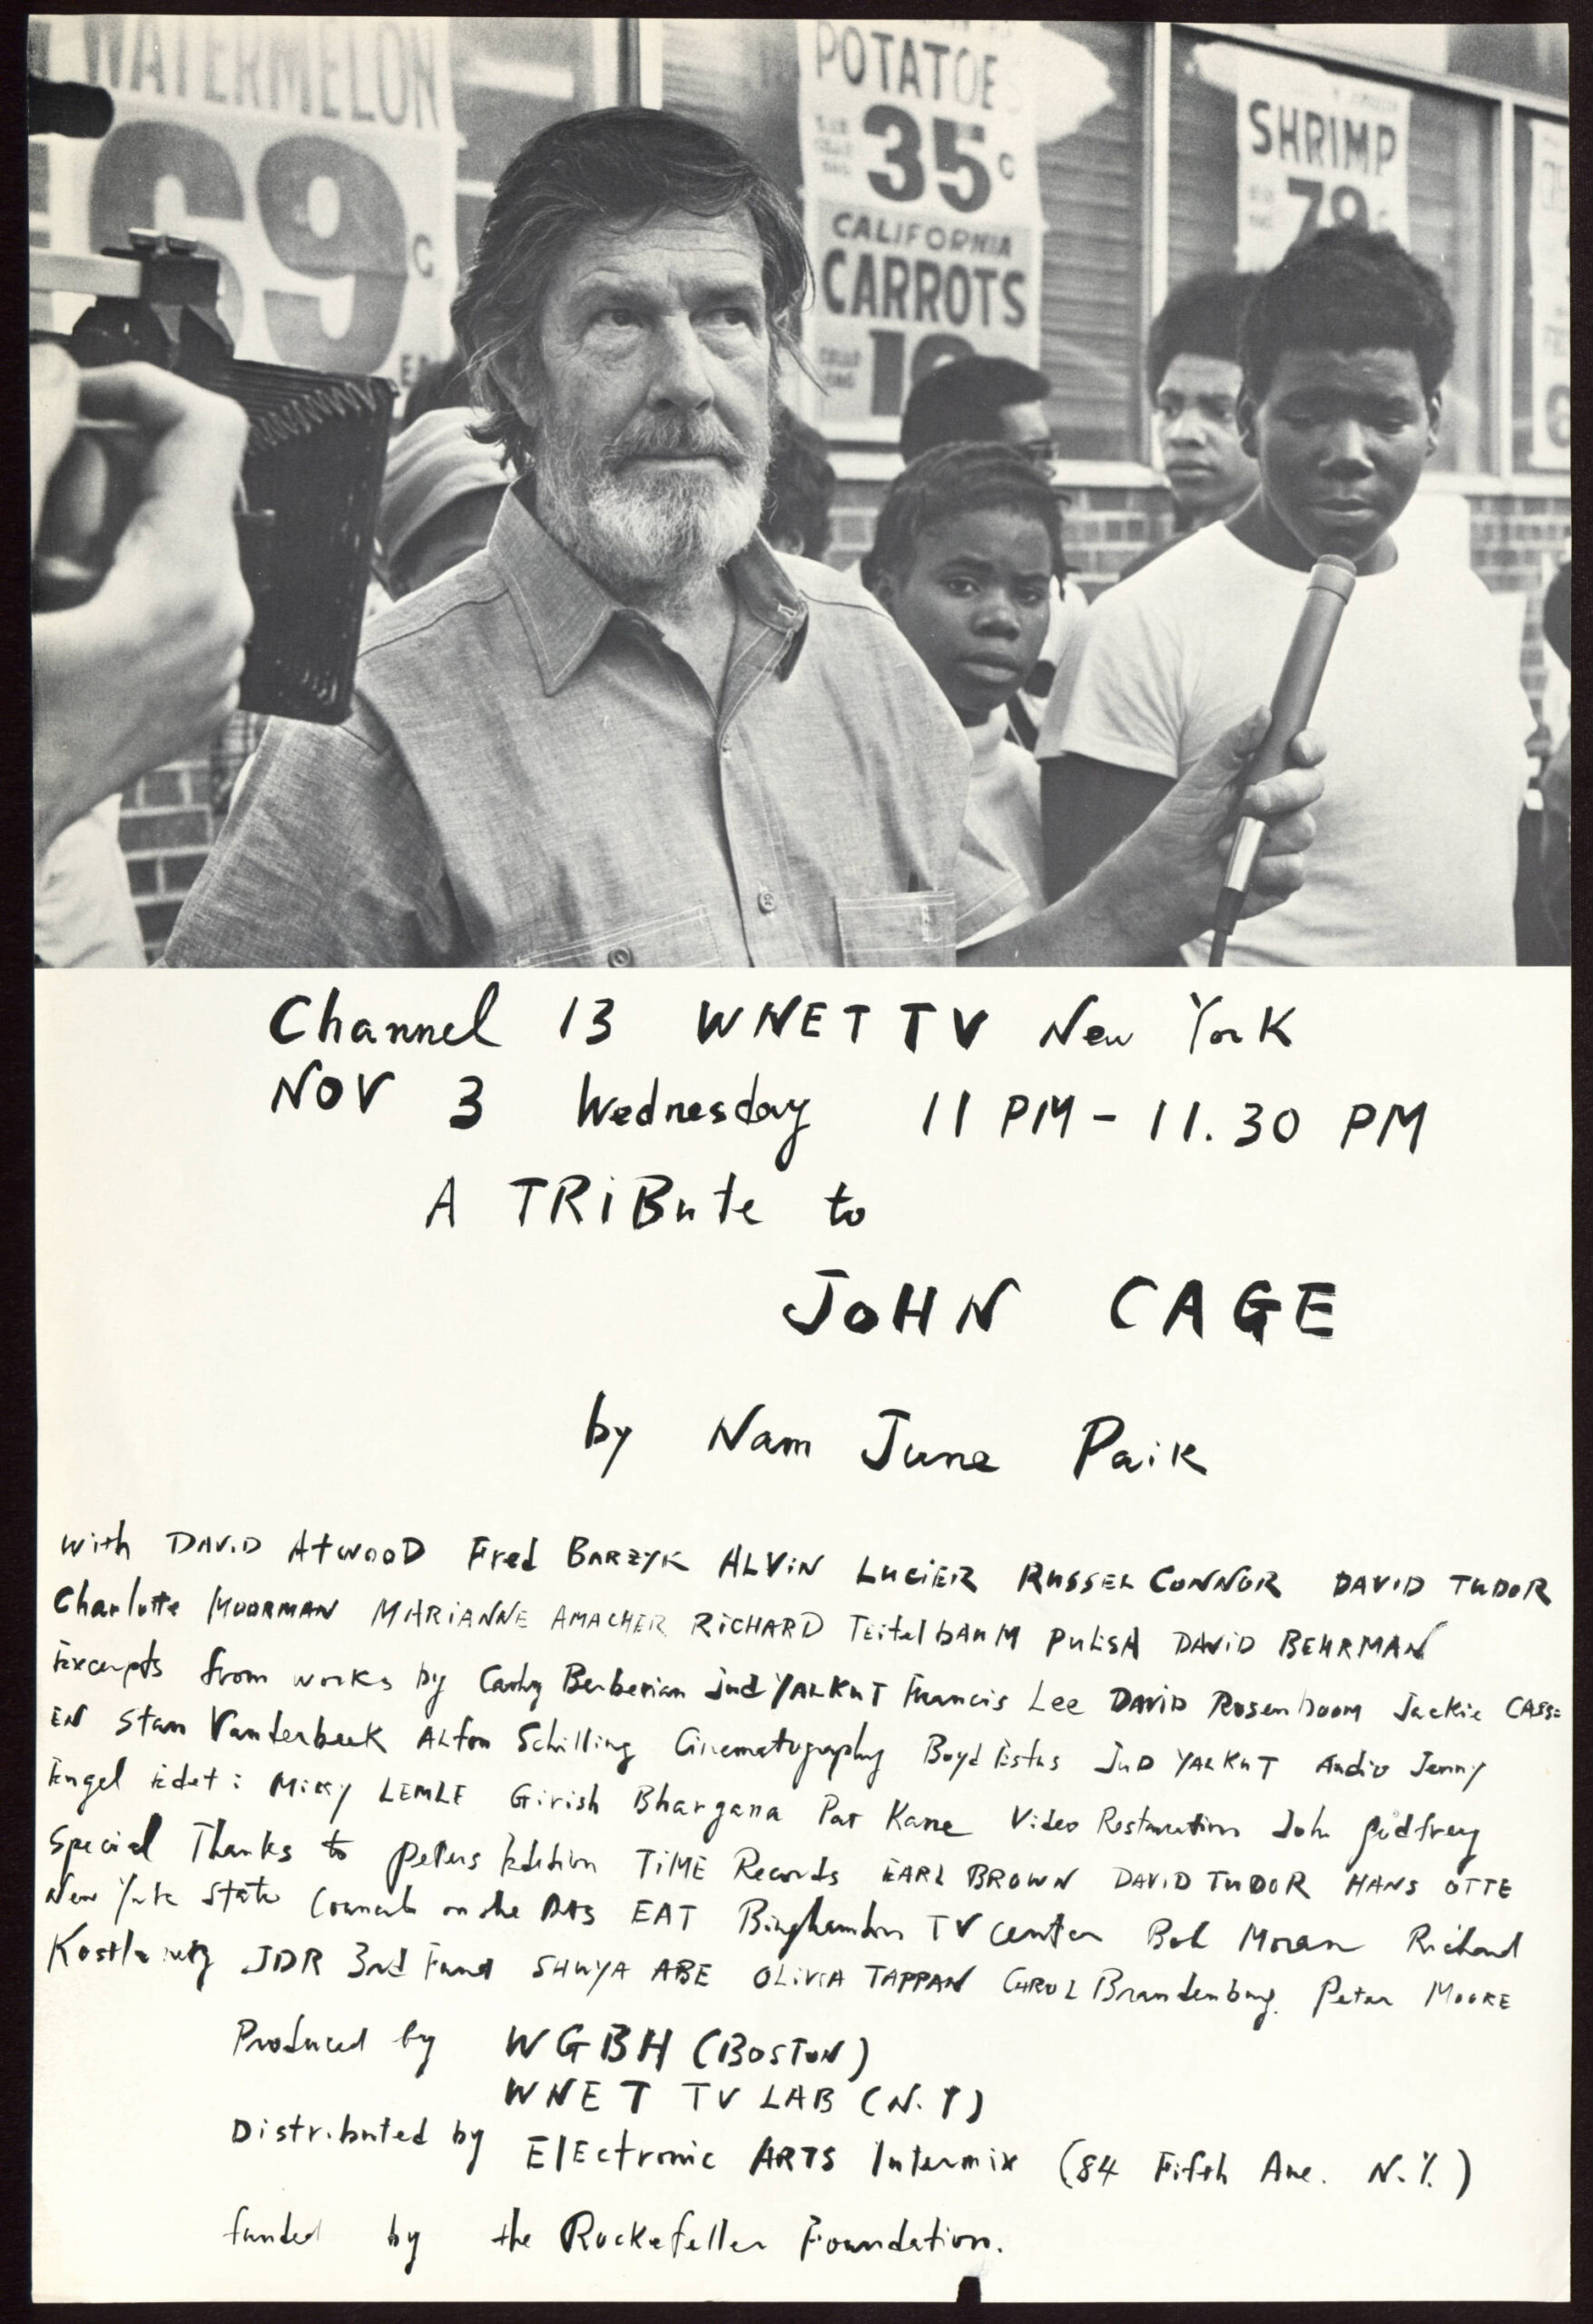 WATERMELON
69 C
EA
POTATOES
35 C
CALIFORNIA
CARROTS
SHRIMP
79 C
Channel 13 WNET TV New York
NOV 3 Wednesday 11 PM - 11.30 PM
A TRiBute to
JoHN CAGE
by Nam June Paik
with DAViD AtwooD Fred BARZYK ALViN LUCiER RUSSEL CONNOR DAVID TUDOR
Charlotte MOORMAN MARiANNE AMACHER RiCHARD TEitelbAUM PULiSA DAViD BEHRMAN
Excerpts from works by Cathy Berberian Jud YALKUT Francis Lee DAViD Rosenboom Jackie CASS=
EN Stan Vanderbeek ALfon Schilling Cinematography Boyd Estus JuD YALKUT Audio Jenny
Engel Edet : Miky LEMLE Girish Bhargana Pat Kane Video Restauration John Godfrey
Special Thanks to Peters Edition TiME Records EARL BROWN DAViD TUDOR HANS OTTE
New York State Council on the Arts EAT Binghamton TV Center Bob Moran Richard
Kostlanetz JDR 3rd Fund SHUYA ABE OLiViA TAPPAN CAROL Brandenburg. Peter MOORE
Produced by WGBH (BOSTON)
WNET TV LAB (N.Y)
Distributed by ElEctronic ARTS Intermix (84 Fifth Ave. N.Y.)
funded by the Rockefeller Foundation.